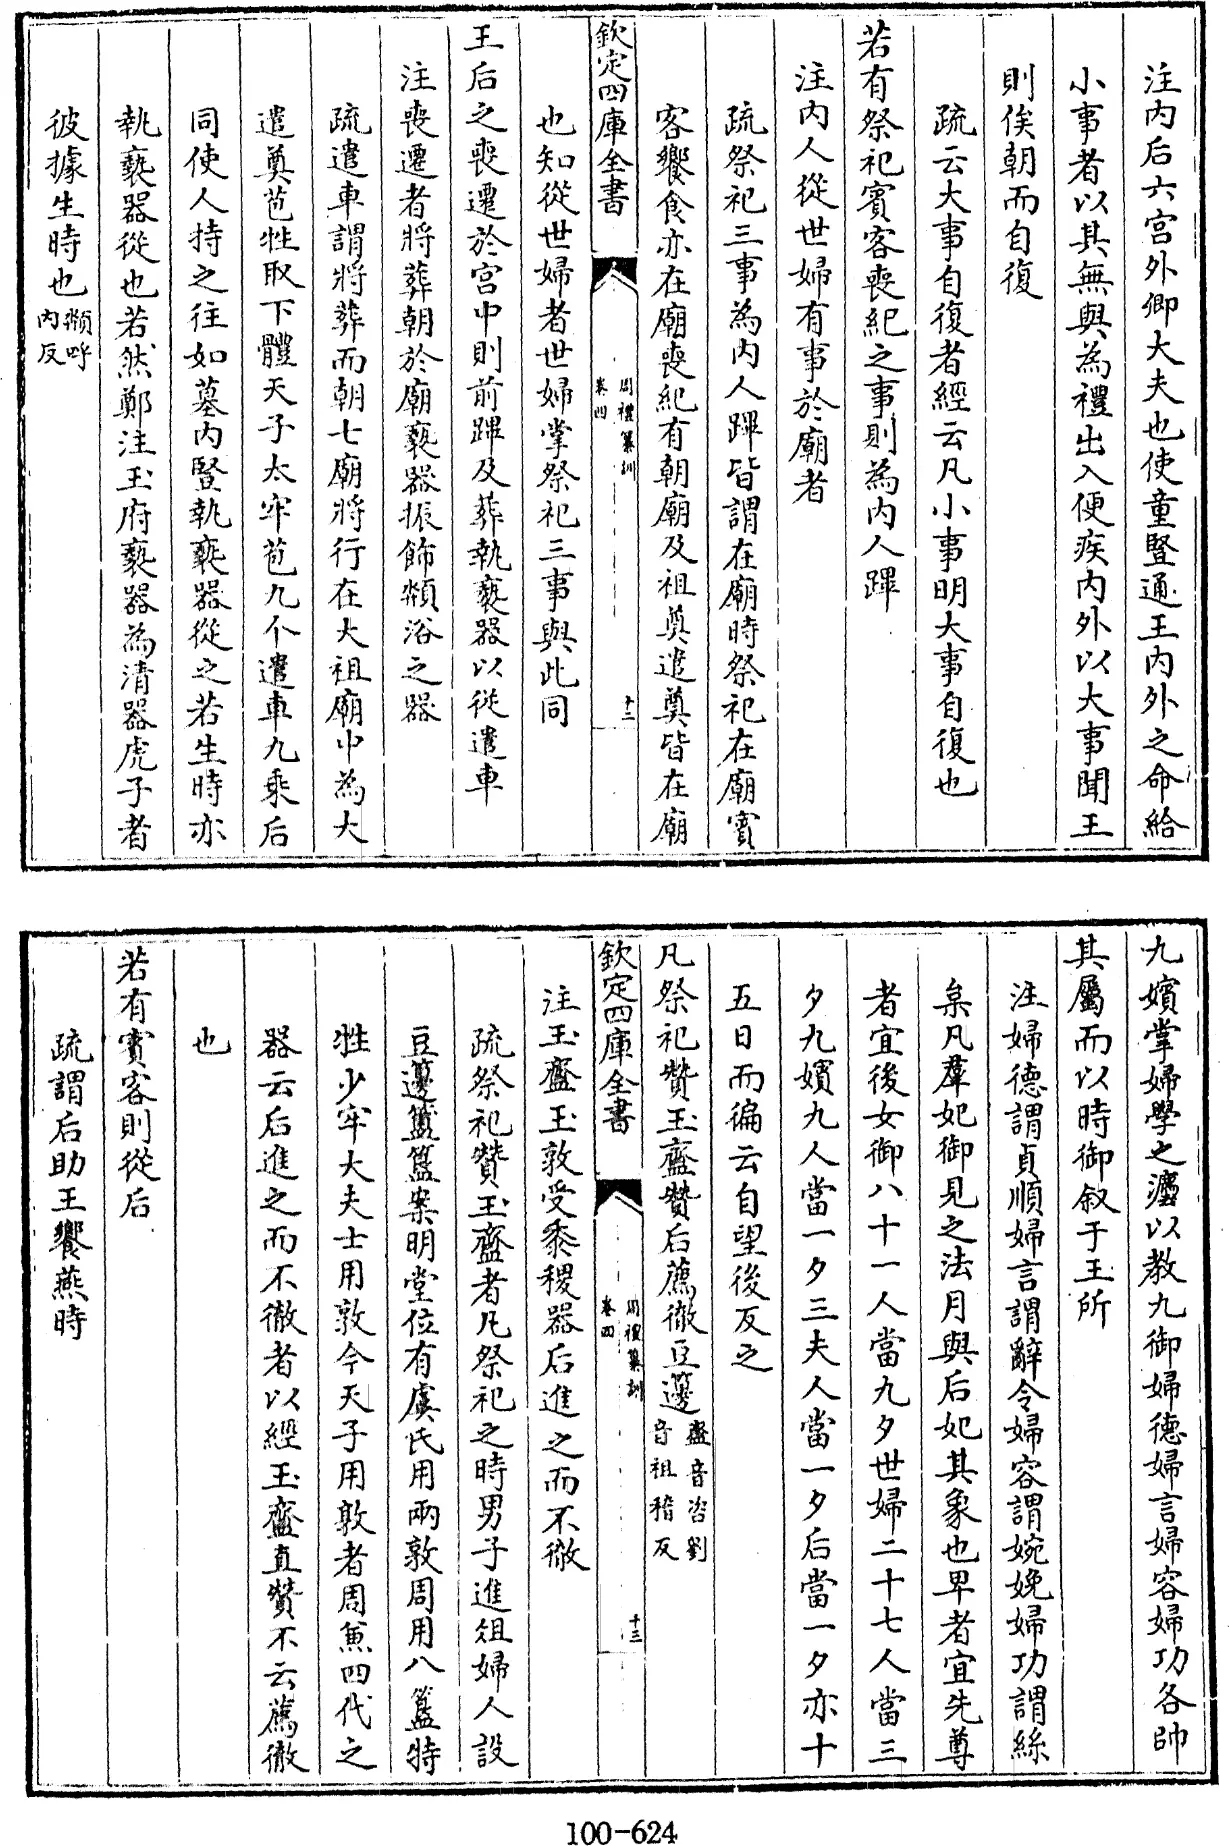 注内后六宫外卿大夫也使童豎通王内外之命給
小事者以其無與為禮出入便疾内外以大事聞王
則俟朝而自復
疏云大事自復者經云凡小事明大事自復也
若有祭祀賓客喪紀之事則為内人蹕
注内人從世婦有事於廟者
疏祭祀三事為内人蹕皆謂在廟時祭祀在廟賓
客饗食亦在廟喪紀有朝廟及祖奠遣奠皆在廟
欽定四庫全書
周禮纂訓
卷四
十二
也知從世婦者世婦掌祭祀三事與此同
王后之喪遷於宫中則前蹕及葬執褻器以從遣車
注喪遷者將葬朝於廟褻器振飾頮浴之器
疏遣車謂將葬而朝七廟將行在大祖廟中為大
遣奠苞牲取下體天子太牢苞九个遣車九乘后
同使人持之往如墓内豎執褻器從之若生時亦
執褻器從也若然鄭注玉府褻器為清器虎子者
彼據生時也頮呼
内反
九嬪掌婦學之灋以教九御婦德婦言婦容婦功各帥
其屬而以時御叙于王所
注婦德謂貞順婦言謂辭令婦容謂婉娩婦功謂絲
枲凡羣妃御見之法月與后妃其象也卑者宜先尊
者宜後女御八十一人當九夕世婦二十七人當三
夕九嬪九人當一夕三夫人當一夕后當一夕亦十
五日而徧云自望後反之
凡祭祀贊玉齍贊后薦徹豆籩齍音咨劉
音祖稽反
欽定四庫全書
周禮纂訓
卷四
十三
注玉齍玉敦受黍稷器后進之而不徹
疏祭祀贊玉齍者凡祭祀之時男子進俎婦人設
豆籩簠簋案明堂位有虞氏用兩敦周用八簋特
牲少牢大夫士用敦今天子用敦者周兼四代之
器云后進之而不徹者以經玉齍直贊不云薦徹
也
若有賓客則從后
疏謂后助王饗燕時
100-624